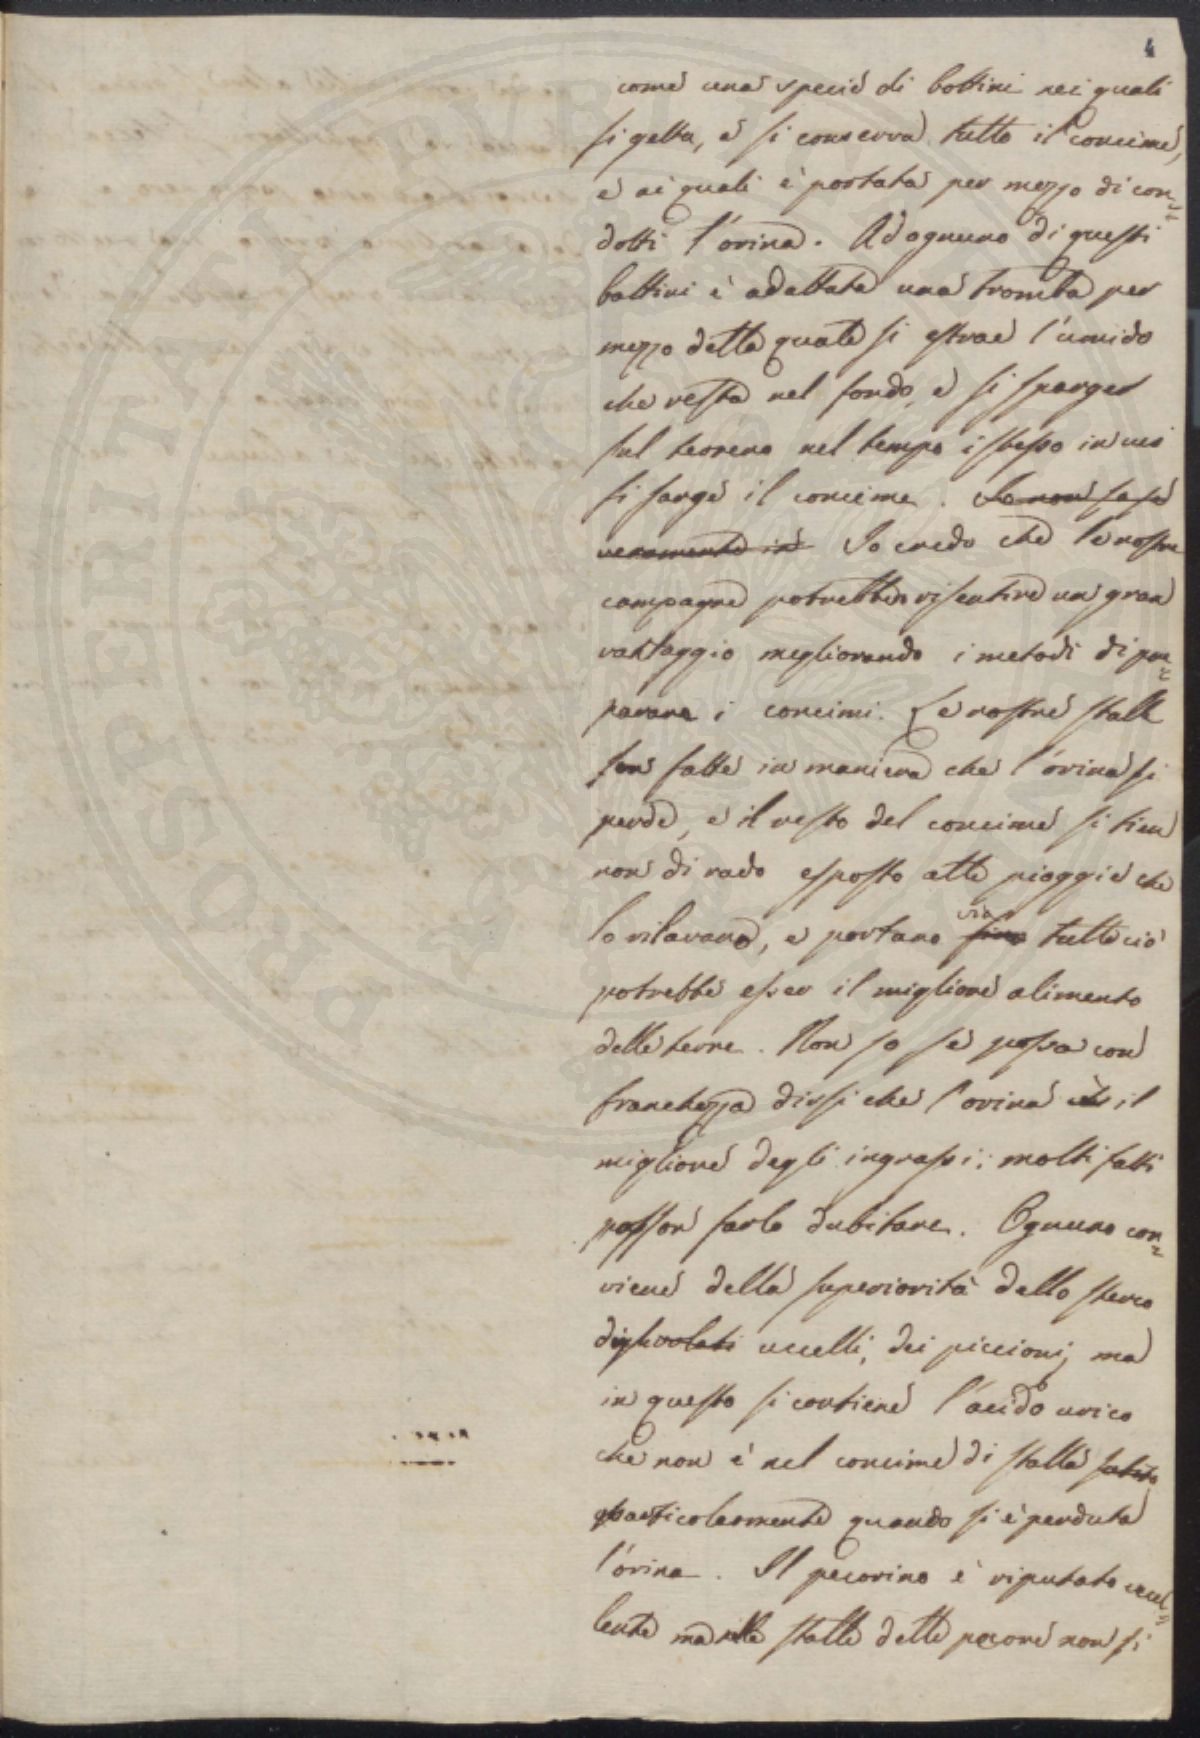 4
come una specie di bottini nei quali
si getta, e si conserva tutto il concime,
e ai quali è portata per mezzo di con=
dotti l'orina. Ad ognuno di questi
bottini è adattata una tromba per
mezzo della quale si estrae l'umido
che resta nel fondo, e si sparger
sul terreno nel tempo istesso in cui
si sarge il concime. Io non so se
veramente in Io credo che le nostre
campagne potrebber risentire un gran
vantaggio megliorando i metodi di pre=
parare i concimi. Le nostre stalle
son fatte in maniera che l'orina si
perde, e il resto del concime si tien
non di rado esposto alle pioggie che
lo rilavano, e portano via tutto ciò
potrebbe esser il migliore alimento
delle terre. Non so se possa con
franchezza dirsi che l'orina è il
migliore degli ingrassi; molti fatti
posson farlo dubitare. Ognuno con=
viene della superiorità dello sterco
degli volati uccelli, dei piccioni, ma
in questo si contiene l'acido urico
che non è nel concime di stalla
particolarmente quando si è perduta
l'orina. Il pecorino è riputato eccel=
lente ma nelle stalle delle pecore non si
POSPERITATI PUBLICAE